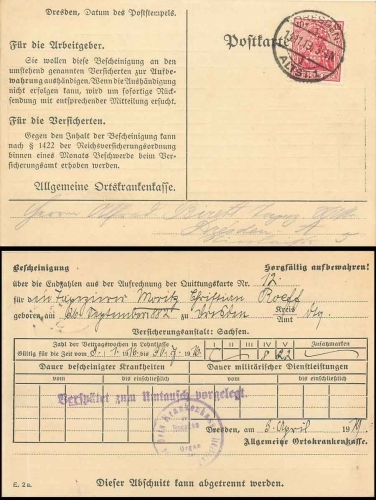 Dresden, Datum des Poststempels.
Für die Arbeitgeber.
Sie wollen diese Bescheinigung an den
umstehend genannten Versicherten zur Aufbe-
wahrung aushändigen. Wenn die Aushändigung
nicht erfolgen kann, wird um sofortige Rück-
sendung mit entsprechender Mitteilung ersucht.
Für die Versicherten.
Gegen den Inhalt der Bescheinigung kann
nach § 1422 der Reichsversicherungsordnung
binnen eines Monats Beschwerde beim Versiche-
rungsamt erhoben werden.
Allgemeine Ortskrankenkasse.
Postkarte
DRESDEN
ALTST.
Herrn Alfred
Dresden A
Bescheinigung Sorgfältig aufbewahren!
über die Endzahlen aus der Aufrechnung der Quittungskarte Nr. 12
für Tapezierer Moritz Christian
geboren am 26. September 1882 zu Dresden Kreis Amt
Versicherungsanstalt: Sachsen.
Zahl der Beitragswochen in Lohnklasse I II III IV V Zusatzmarken
Gültig für die Zeit vom bis
Dauer bescheinigter Krankheiten Dauer militärischer Dienstleistungen
vom bis einschließlich vom bis einschließlich vom bis einschließlich
Verspätet zum Umtausch vorgelegt.
Dresden
Dresden, am 5. April 1919
Allgemeine Ortskrankenkasse.
E. 2a. Dieser Abschnitt kann abgetrennt werden.